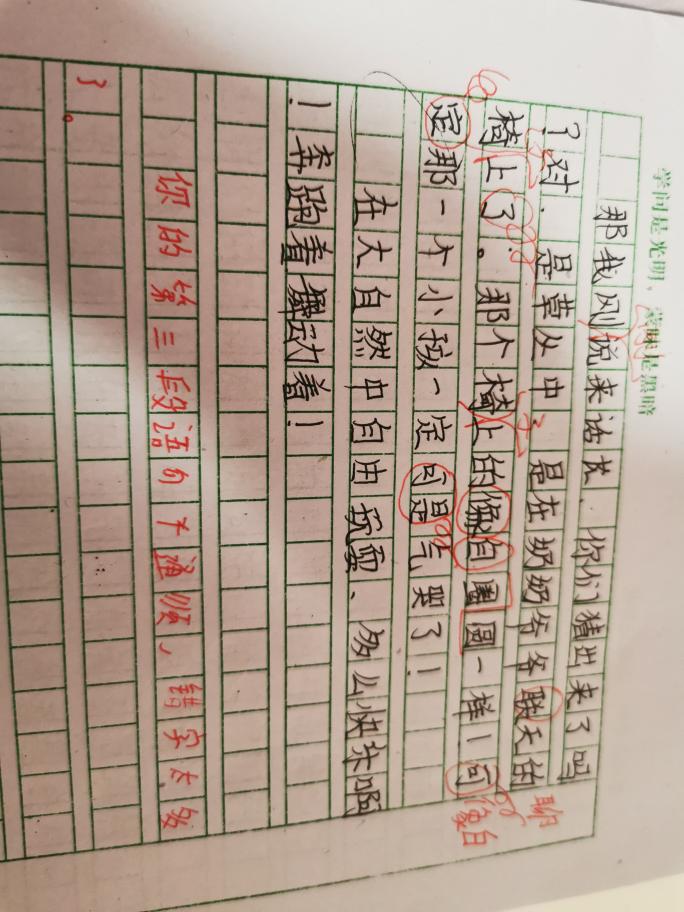 学问是光明，蒙昧是黑暗
那我刚悦来话长、你们猜出来了吗
？对．是草丛中．是在奶奶爷爷联天的
聊
椅上了。那个椅上的像自圈圆一样！
子
子
像自
定那一个小孩一定可是气哭了！
在大自然中自由玩耍、多么快乐啊
！奔跑着舞动着！
你的第三段语句不通顺，错字太多
了。